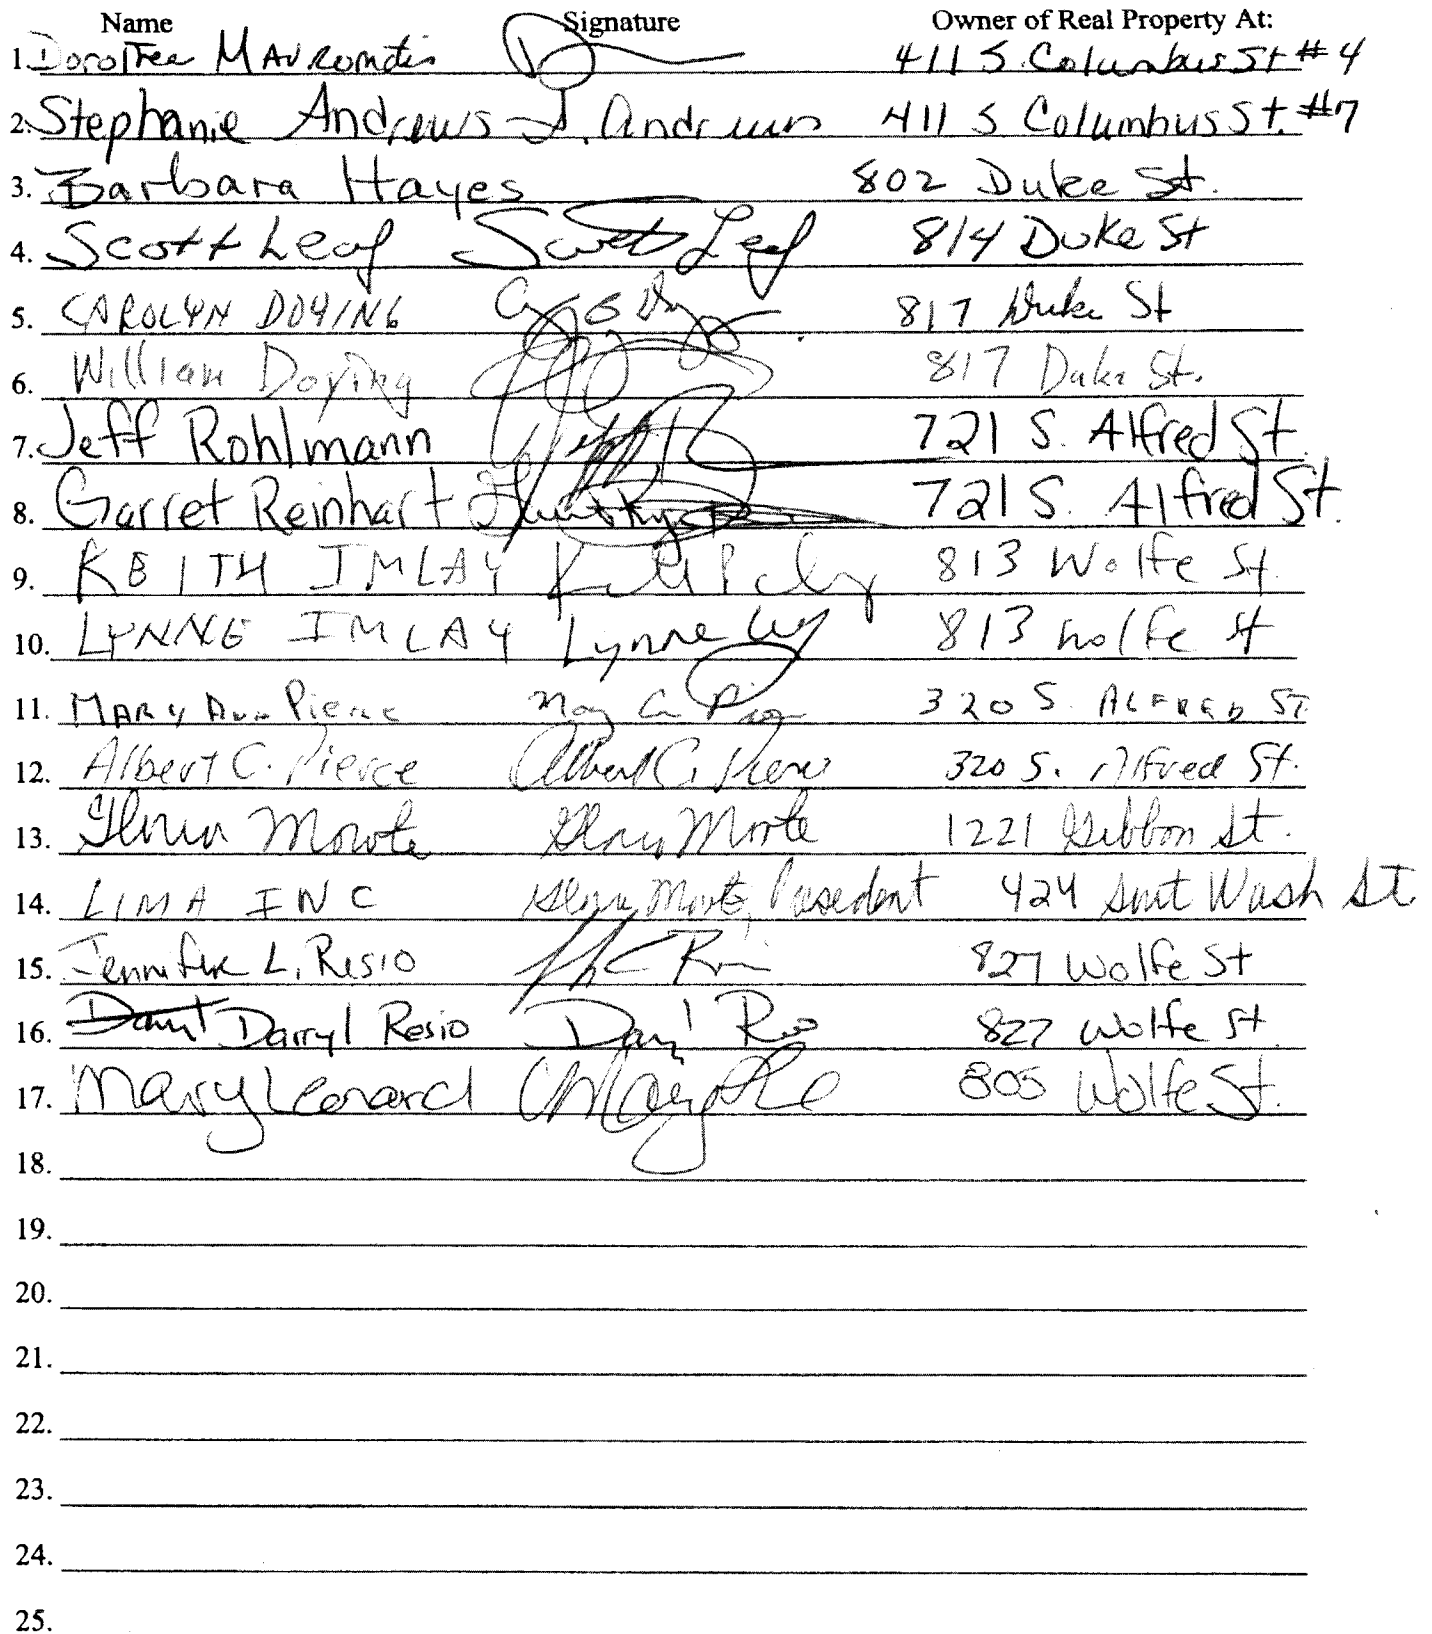 Name Signature Owner of Real Property At:
1. Dorothee Mavromatis 411 S. Columbus St #4
2. Stephanie Andrews S. Andrews 411 S Columbus St. #7
3. Barbara Hayes 802 Duke St.
4. Scott Leaf Scott Leaf 814 Duke St
5. CAROLYN DOYING 817 Duke St
6. William Doying 817 Duke St.
7. Jeff Rohlmann 721 S. Alfred St.
8. Garret Reinhart 721 S. Alfred St.
9. KEITH IMLAY 813 Wolfe St.
10. LYNNE IMLAY Lynne 813 Wolfe St
11. MARY Ann Pierce 320 S. ALFRED ST.
12. Albert C. Pierce Albert C. Pierce 320 S. Alfred St.
13. Gloria Morote 1221 Gibbon St.
14. LIMA INC President 424 Wash St.
15. Jennifer L. Resio 827 Wolfe St
16. Darryl Resio 827 Wolfe St.
17. Mary Leonard 805 Wolfe St.
18.
19.
20.
21.
22.
23.
24.
25.